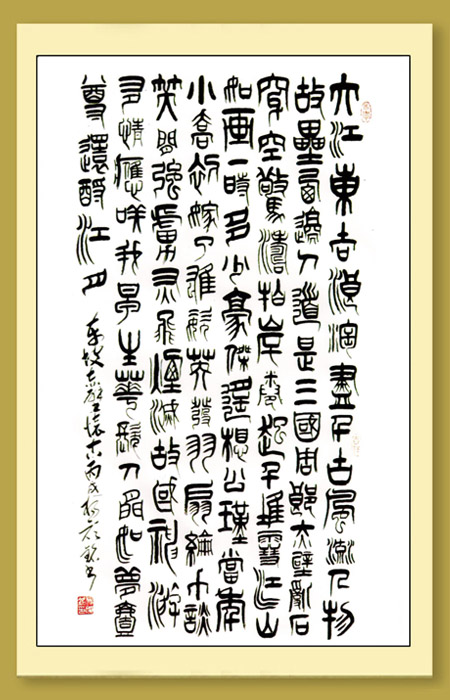 大江東去浪淘盡千古風流人物
故壘西邊人道是三國周郎赤壁亂石
穿空驚濤拍岸捲起千堆雪江山
如畫一時多少豪傑遙想公瑾當年
小喬初嫁了雄姿英發羽扇綸巾談
笑間強虜灰飛煙滅故國神游
多情應咲我早生華髮人間如夢
尊還酹江月
東坡赤壁懷古丙戌書